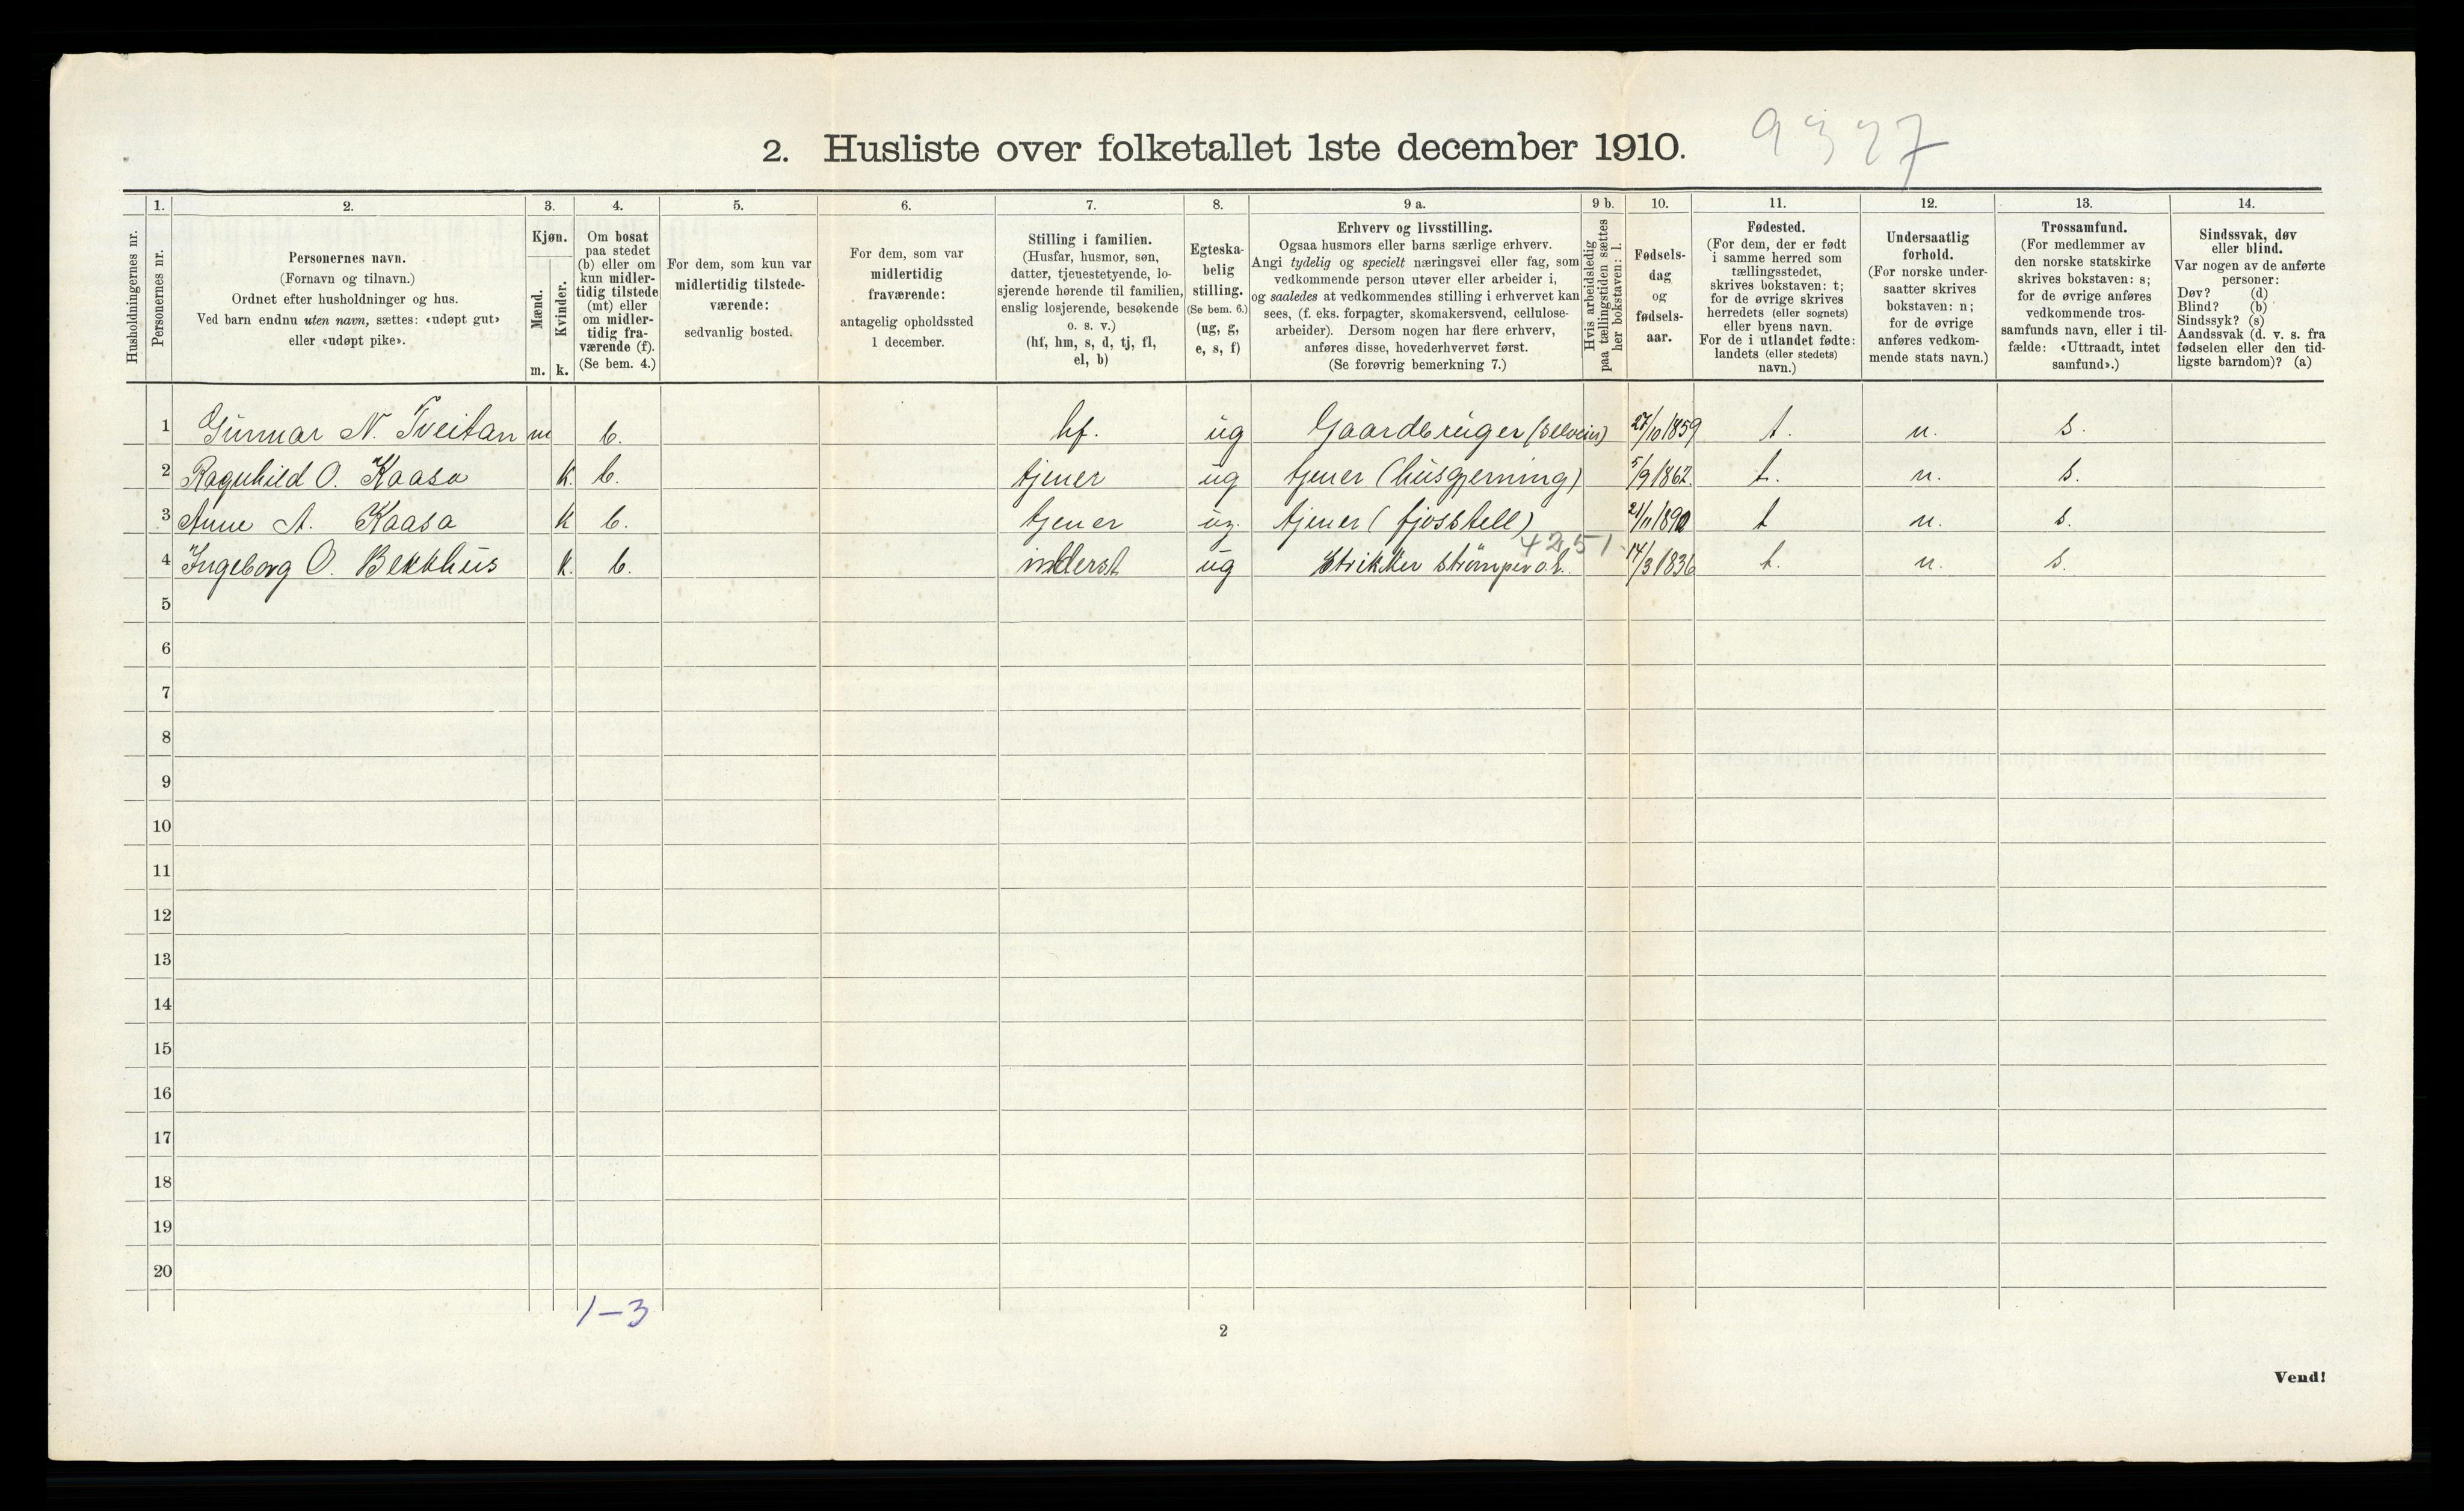 2. Husliste over folketallet 1ste december 1910.
9327
1. 2. 3. 4. 5. 6. 7. 8. 9 a. 9 b. 10. 11. 12. 13. 14.
Husholdningernes nr.
Personernes nr.
Personernes navn.
(Fornavn og tilnavn.)
Ordnet efter husholdninger og hus.
Ved barn endnu uten navn, sættes: «udøpt gut»
eller «udøpt pike».
Kjøn.
Mænd.
Kvinder.
m. k.
Om bosat
paa stedet
(b) eller om
kun midler-
tidig tilstede
(mt) eller
om midler-
tidig fra-
værende (f).
(Se bem. 4.)
For dem, som kun var
midlertidig tilstede-
værende:
sedvanlig bosted.
For dem, som var
midlertidig
fraværende:
antagelig opholdssted
1 december.
Stilling i familien.
(Husfar, husmor, søn,
datter, tjenestetyende, lo-
sjerende hørende til familien,
enslig losjerende, besøkende
o. s. v.)
(hf, hm, s, d, tj, fl,
el, b)
Egteska-
belig
stilling.
(Se bem. 6.)
(ug, g,
e, s, f)
Erhverv og livsstilling.
Ogsaa husmors eller barns særlige erhverv.
Angi tydelig og specielt næringsvei eller fag, som
vedkommende person utøver eller arbeider i,
og saaledes at vedkommendes stilling i erhvervet kan
sees, (f. eks. forpagter, skomakersvend, cellulose-
arbeider). Dersom nogen har flere erhverv,
anføres disse, hovederhvervet først.
(Se forøvrig bemerkning 7.)
Hvis arbeidsledig
paa tællingstiden sættes
her bokstaven: l.
Fødsels-
dag
og
fødsels-
aar.
Fødested.
(For dem, der er født
i samme herred som
tællingsstedet,
skrives bokstaven: t;
for de øvrige skrives
herredets (eller sognets)
eller byens navn.
For de i utlandet fødte:
landets (eller stedets)
navn.)
Undersaatlig
forhold.
(For norske under-
saatter skrives
bokstaven: n;
for de øvrige
anføres vedkom-
mende stats navn.)
Trossamfund.
(For medlemmer av
den norske statskirke
skrives bokstaven: s;
for de øvrige anføres
vedkommende tros-
samfunds navn, eller i til-
fælde: «Uttraadt, intet
samfund».)
Sindssvak, døv
eller blind.
Var nogen av de anførte
personer:
Døv? (d)
Blind? (b)
Sindssyk? (s)
Aandssvak (d. v. s. fra
fødselen eller den tid-
ligste barndom)? (a)
1 Gunnar N. Tveitan m b. hf. ug Gaardbruger (selveier) 27/10 1859 t. n. s.
2 Ragnhild O. Kaasa k. b. tjener ug tjener (husgjerning) 5/9 1862. t. n. s.
3 Anne A. Kaasa k b. tjener ug. tjener (fjøsstell) 21/11 1890 t n. s.
4251
4 Ingeborg O. Bekkhus k. b. inderst ug Strikker strømper o.l. 14/3 1836 t. n. s.
5
6
7
8
9
10
11
12
13
14
15
16
17
18
19
20
1-3
2
Vend!